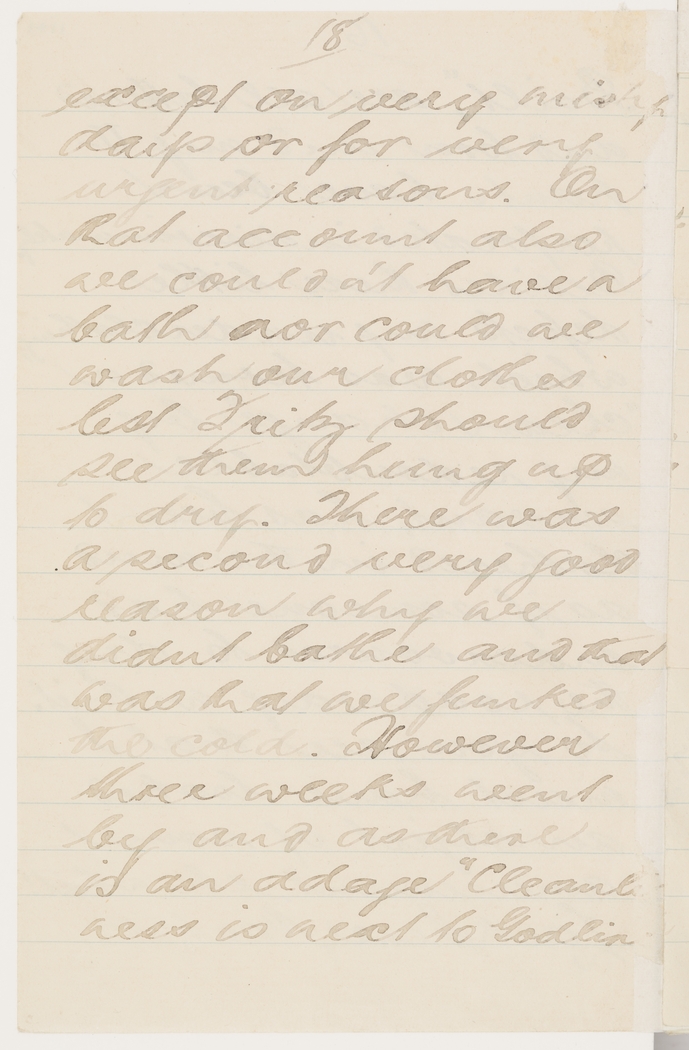 18
except on very misty
days or for very
urgent reasons. On
that account also
we could n't have a
bath nor could we
wash our clothes
lest Fritz should
see them hung up
to dry. There was
a second very good
reason why we
didnt bathe and that
was that we funked
the cold. However
three weeks went
by and as there
is an adage "Cleanli
ness is next to Godlin